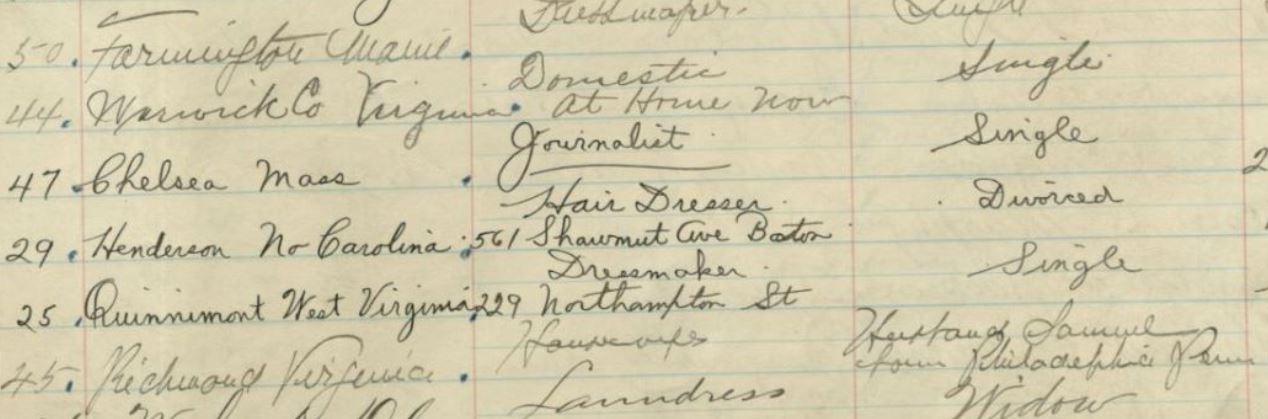 Dressmaker. Single
50. Farmington Maine.
Domestic Single
44. Warwick Co Virginia. at Home now
Journalist Single
47 Chelsea Mass.
Hair Dresser. Divorced
29. Henderson No Carolina. 561 Shawmut Ave Boston
Dressmaker. Single
25. Quinnimont West Virginia. 229 Northampton St
Housewife Husband Samuel
from Philadelphia Penn
45. Richmond Virginia.
Laundress Widow